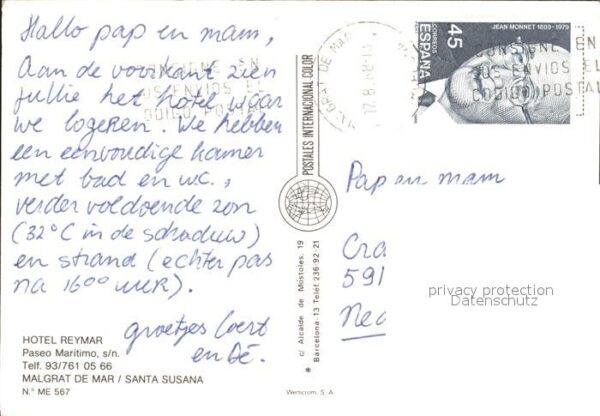 Hallo pap en mam,
Aan de voorkant zien
jullie het hotel waar
we logeren. We hebben
een eenvoudige kamer
met bad en wc.,
verder voldoende zon
(32°C in de schaduw)
en strand (echter pas
na 1600 uur).
groetjes
en Dé.
HOTEL REYMAR
Paseo Marítimo, s/n.
Telf. 93/761 05 66
MALGRAT DE MAR / SANTA SUSANA
N.º ME 567
POSTALES INTERNACIONAL COLOR
c/ Alcalde de Móstoles, 19
* Barcelona-13 Telef. 236-92-21
Werticrom, S. A.
JEAN MONNET 1888-1979
45
CORREOS
ESPAÑA
MALGRAT DE MAR
CONSIGNE EN
SUS ENVIOS EL
CODIGO POSTAL
CONSIGNE EN
SUS ENVIOS EL
CODIGO POSTAL
Pap en mam
Cra
591
Ned
privacy protection
Datenschutz